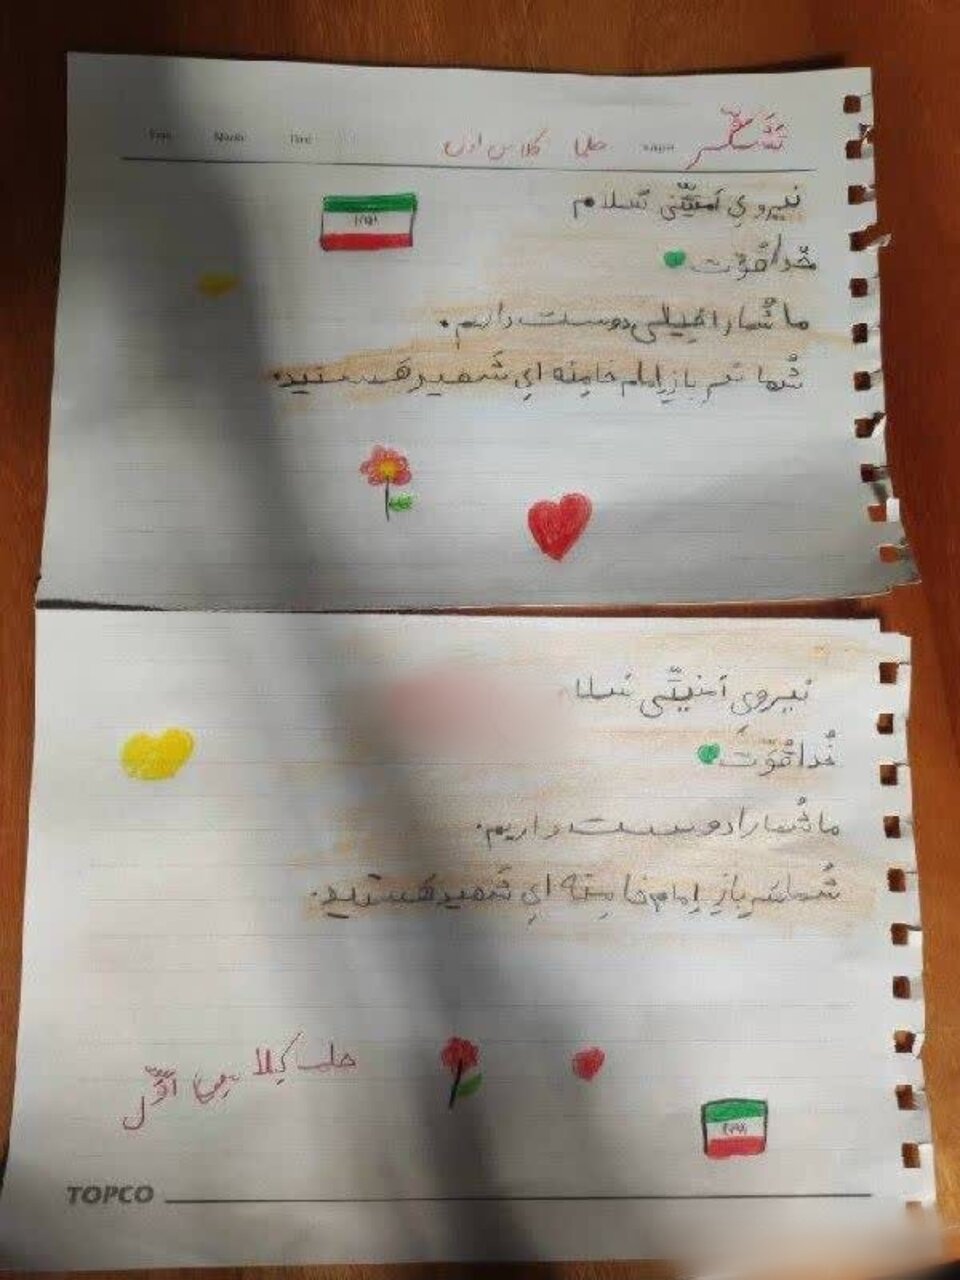 تَشَکُّر
حلما کلاس اول
نیروی اَمنیَّتی سَلام
خُدا قُوَّت
ما شُما را خِیلی دوست داریم.
شُما سَرباز اِمام خامِنه اِی شَهید هَستید.
نیروی اَمنیَّتی سَلا
خُدا قُوَّت
ما شُما را دوست داریم.
شُما سَرباز اِمام خامِنه اِی شَهید هَستید.
حلما کلاس اوّل
TOPCO